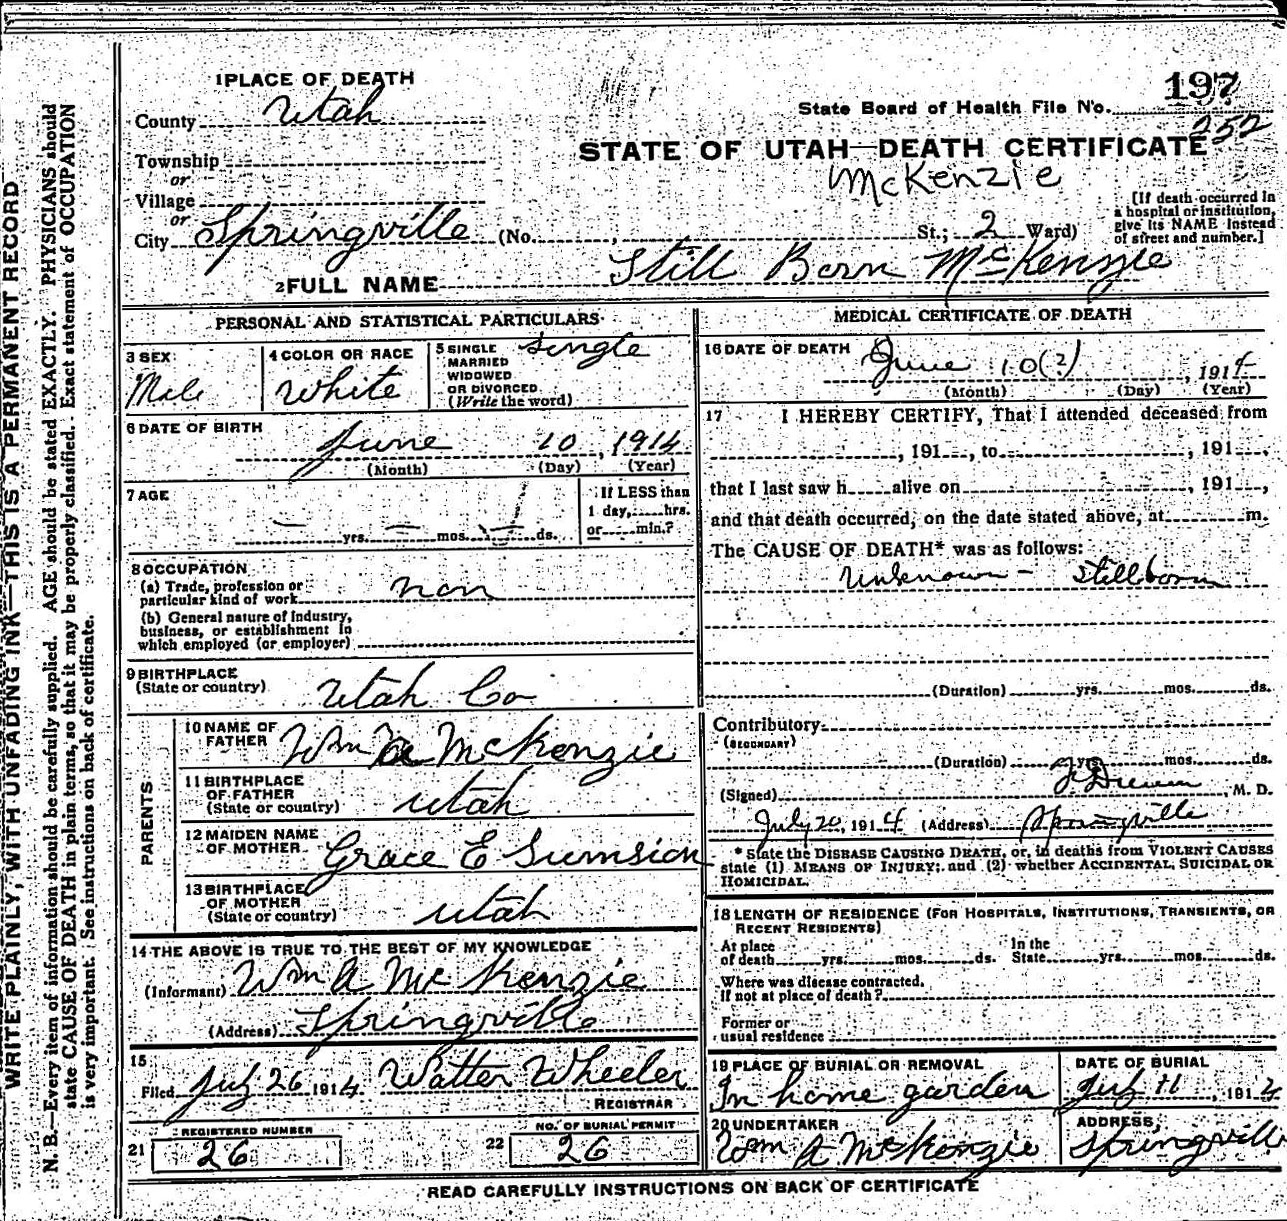 1 PLACE OF DEATH
County Utah
Township
or
Village
or
City Springville (No. , St.; 2 Ward)
State Board of Health File No. 197
252
STATE OF UTAH—DEATH CERTIFICATE
McKenzie
[If death occurred in
a hospital or institution,
give its NAME instead
of street and number.]
2 FULL NAME Still Born McKenzie
PERSONAL AND STATISTICAL PARTICULARS
3 SEX
Male
4 COLOR OR RACE
White
5 SINGLE
MARRIED
WIDOWED
OR DIVORCED
(Write the word)
Single
6 DATE OF BIRTH
June 10, 1914
(Month) (Day) (Year)
7 AGE
— yrs. — mos. — ds.
If LESS than
1 day, hrs.
or min.?
8 OCCUPATION
(a) Trade, profession or
particular kind of work non
(b) General nature of industry,
business, or establishment in
which employed (or employer)
9 BIRTHPLACE
(State or country) Utah Co
PARENTS
10 NAME OF
FATHER Wm McKenzie
11 BIRTHPLACE
OF FATHER
(State or country) Utah
12 MAIDEN NAME
OF MOTHER Grace E Sumsion
13 BIRTHPLACE
OF MOTHER
(State or country) Utah
14 THE ABOVE IS TRUE TO THE BEST OF MY KNOWLEDGE
(Informant) Wm A McKenzie
(Address) Springville
15
Filed July 26 1914 Walter Wheeler
REGISTRAR
21 REGISTERED NUMBER
26
22 NO. OF BURIAL PERMIT
26
MEDICAL CERTIFICATE OF DEATH
16 DATE OF DEATH
June 10(?), 1914
(Month) (Day) (Year)
17 I HEREBY CERTIFY, That I attended deceased from
, 191 , to , 191 ,
that I last saw h alive on , 191 ,
and that death occurred, on the date stated above, at m.
The CAUSE OF DEATH* was as follows:
Unknown - Stillborn
(Duration) yrs. mos. ds.
Contributory
(SECONDARY)
(Duration) yrs. mos. ds.
(Signed) , M. D.
July 20, 1914 (Address) Springville
* State the DISEASE CAUSING DEATH, or, in deaths from VIOLENT CAUSES
state (1) MEANS OF INJURY; and (2) whether ACCIDENTAL, SUICIDAL OR
HOMICIDAL.
18 LENGTH OF RESIDENCE (FOR HOSPITALS, INSTITUTIONS, TRANSIENTS, OR
RECENT RESIDENTS)
At place
of death yrs. mos. ds.
In the
State yrs. mos. ds.
Where was disease contracted,
if not at place of death?
Former or
usual residence
19 PLACE OF BURIAL OR REMOVAL
In home garden
DATE OF BURIAL
July 11, 1914
20 UNDERTAKER
Wm A McKenzie
ADDRESS
Springville
READ CAREFULLY INSTRUCTIONS ON BACK OF CERTIFICATE
WRITE PLAINLY, WITH UNFADING INK—THIS IS A PERMANENT RECORD
N. B.—Every item of information should be carefully supplied. AGE should be stated EXACTLY. PHYSICIANS should
state CAUSE OF DEATH in plain terms, so that it may be properly classified. Exact statement of OCCUPATION
is very important. See instructions on back of certificate.